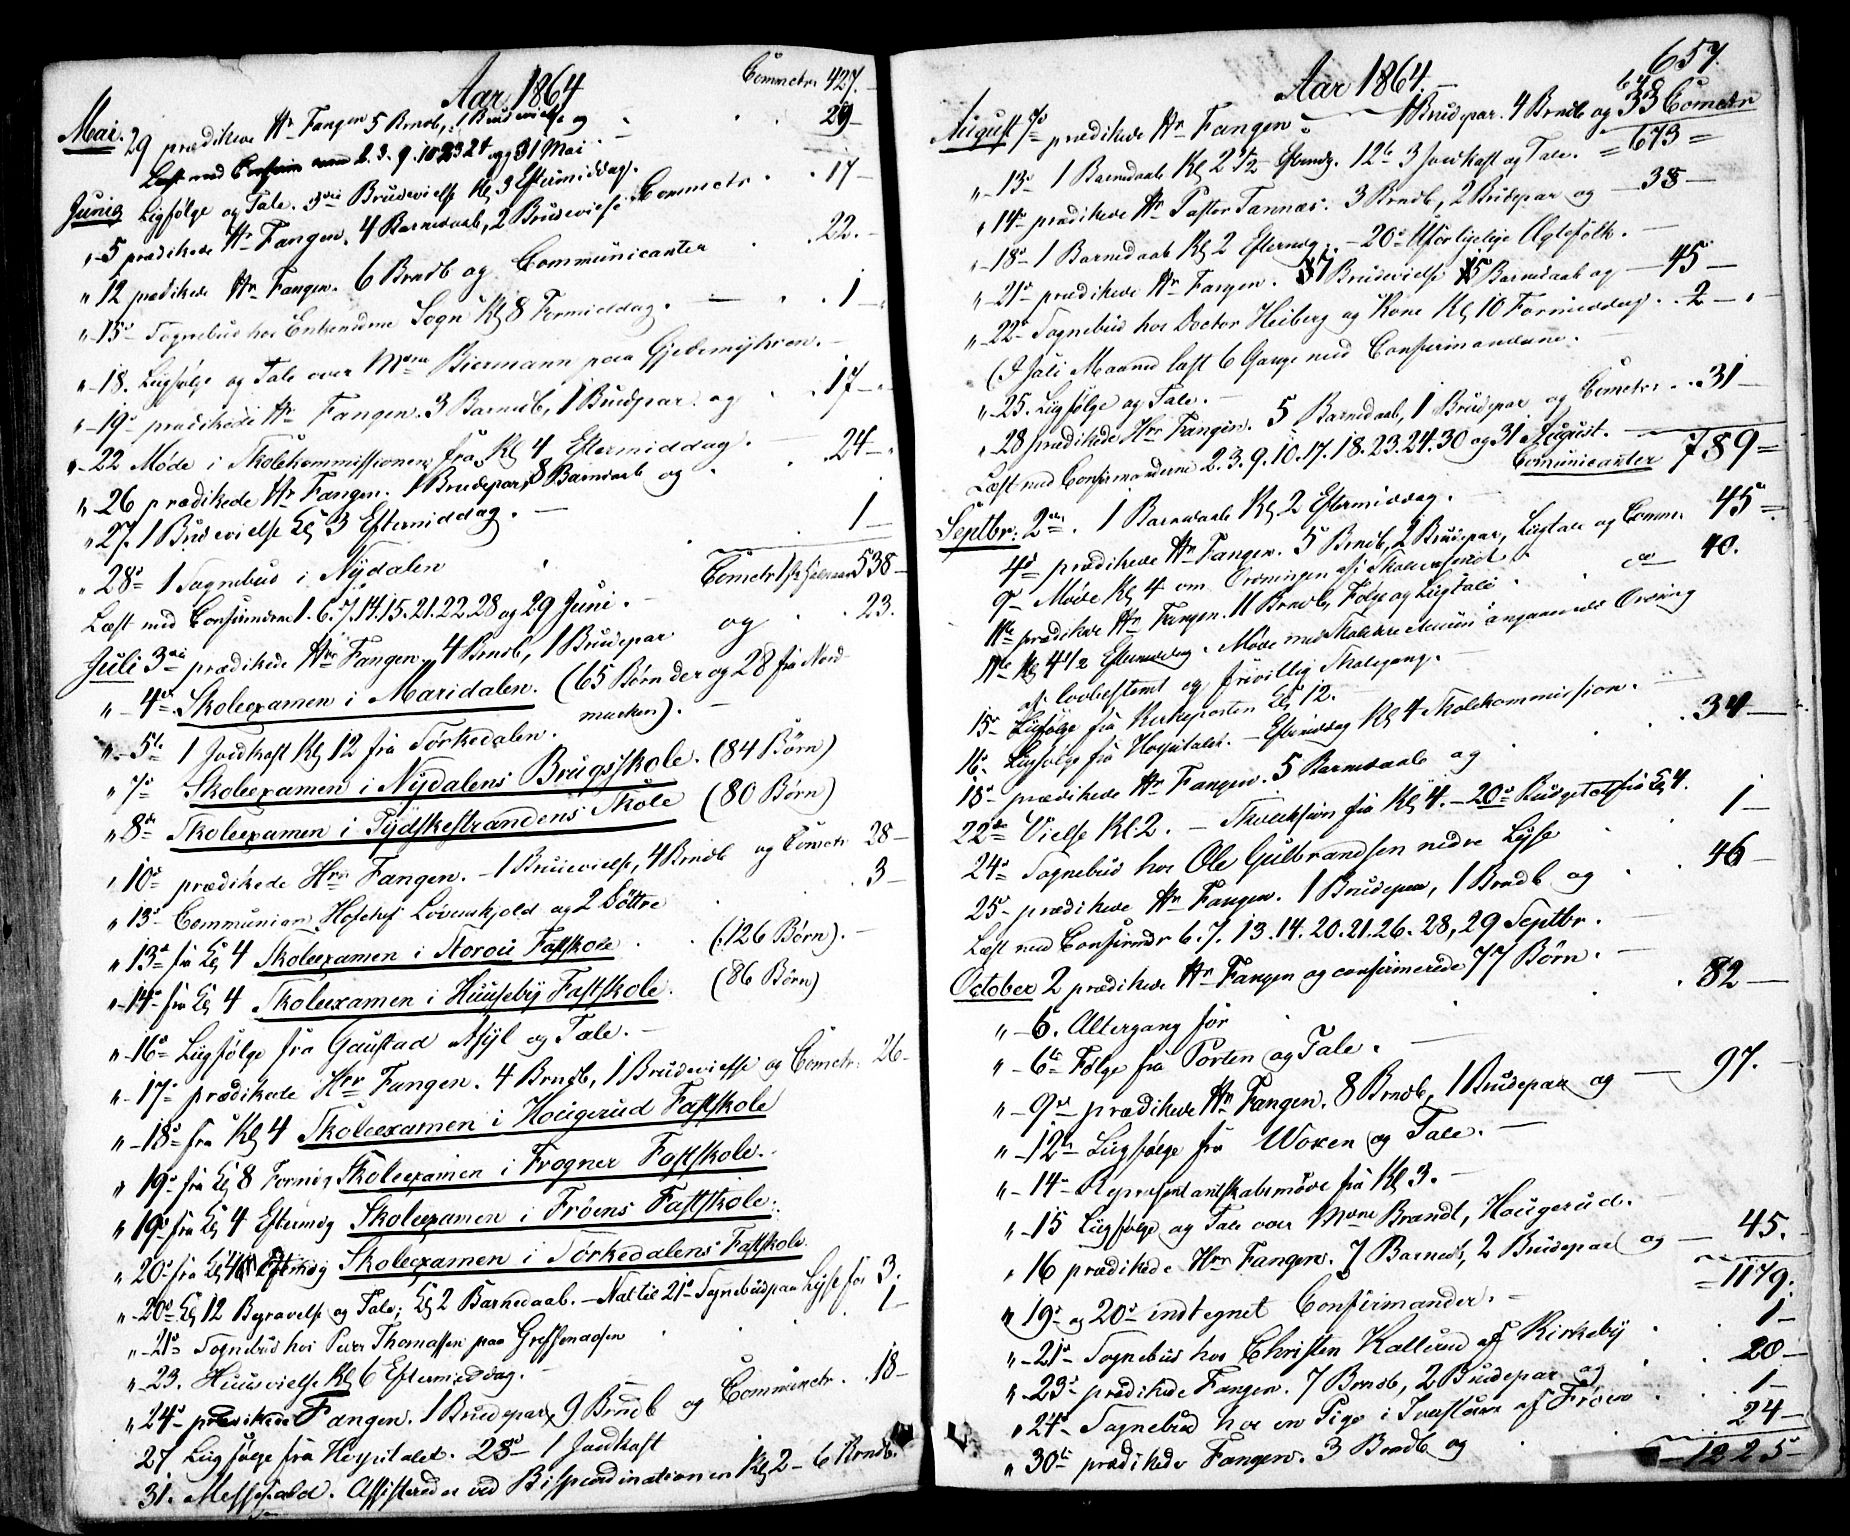 Aar 1864 Commctr. 427.
Mai. 29 prædikede Hr Fangen 5 Brndb, 1 Brudevielse og 29 —
Læst med Confirm 2. 3. 9. 10 23 24 og 31 Mai
Junio Ligfølge og Tale. 3die Brudevielse Kl 3 Eftermiddag.
" 5 prædikede Hr Fangen. 4 Barnedaab, 2 Brudevielse Commctr . . 17 —
" 12 prædikede Hr Fangen. 6 Brndb og Communicanter . . 22. —
" 15 Sognebud hos Enkend Sogn Kl 8 Formiddag. — . . 1 —
" — 18. Liigfølge og Tale over Mdm Biermann paa Gjedemyhren. —
" — 19 prædikede Hr Fangen. 3 Barndb, 1 Brudpar og . . 17 —
" — 22 Møde i Skolekommissionen fra Kl 4 Eftermiddag. —
" 26 prædikede Hr Fangen. 1 Brudepar, 8 Barndaab og . . 24 —
" 27. 1 Brudevielse Kl 3 Eftermiddag. —
" 28 1 Sognebud i Nydalen . . 1 —
Commctr 538 —
Læst med Confirmdrne 1. 6. 7. 14. 15. 21. 22. 28 og 29 Juni. —
Juli 3die prædikede Hr Fangen. 4 Brndb, 1 Brudepar og . . 23.
" — 4de Skoleexamen i Maridalen. (65 Børn der og 28 fra Nord-
marken). —
" — 5te 1 Jordkast Kl 12 fra Sørkedalen.
" 7 Skoleexamen i Nydalens Brugsskole. (84 Børn)
" 8de Skoleexamen i Tydskestrandens Skole (80 Børn)
" 10 prædikede Hrr Fangen. — 1 Brudevielse, 4 Brndb og Comctr 28 —
" 13 Communion Hofchef Løvenskjold og 2 Døttre . . 3 —
" 13 fra Kl 4 Skoleexamen i Storøü Fastskole . . (126 Børn). —
" — 14 fra Kl 4 Skoleexamen i Huuseby Fastskole. (86 Børn)
" — 16 Liigfølge fra Gaustad Asyl og Tale. —
" — 17 prædikede Hrr Fangen. 4 Brndb, 1 Brudevielse og Comctr. 26 —
" — 18 fra Kl 4 Skoleexamen i Hougerud Fastskole
" 19 fra Kl 8 Formdg Skoleexamen i Frogner Fastskole.
" 19 fra Kl 4 Eftermdg Skoleexamen i Frøens Fastskole.
" 20 fra Kl 4 Eftmdg Skoleexamen i Sørkedalens Fastskole.
" — 20 Kl 12 Begravelse og Tale; Kl 2 Barnedaab. — Nat til 21 Sognebud paa Lysse for 3.
" — 21 Sognebud hos Peder Thomassen paa Grefsenaasen . . 1 —
" — 23. Huusvielse Kl 6 Eftermiddag. —
" 24 prædikede Fangen. 1 Brudepar, 9 Brndb og Communctr. . . 18 —
27 Liigfølge fra Hospitalet. 28 1 Jordkast
31. Messefald. Assisterede ved Bispeordinationen Kl 2 — 6 Brndb.
Aar 1864. — 657.
August 7 prædikede Hr Fangen — 1 Brudepar. 4 Brndb og 33 Comctr
" — 13 1 Barnedaab Kl 2 1/2 Eftmdg. 12te 3 Jordkast og Tale. = 673 =
" 14 prædikede Hr Pastor Tannæs. 3 Brndb, 2 Brudepar og — 38 —
" — 18 — 1 Barnedaab Kl 2 Eftermdg. — 20 Uforligelige Ægtefolk. —
" — 21 prædikede Hr Fangen. 1 Brudevielse 5 Barnedaab og — 45 —
" — 22 Sognebud hos Doctor Heiberg og Kone Kl 10 Formiddag. . 2 —
(I Juli Maaned læst 6 Gange med Confirmanderne. —
" — 25. Liigfølge og Tale. —
" 28 prædikede Hrr Fangen. 5 Barnedaab, 1 Brudepar og Comctr . . 31 —
Læst med Confirmanderne 2. 3. 9. 10. 17. 18. 23. 24. 30 og 31 August. —
Comunicanter 789 =
Septbr: 2den. 1 Barnedaab Kl 2 Eftermiddag. —
4de prædikede Hr Fangen. 5 Brndb, 2 Brudepar, Ligtale og Commc 45 =
9 — Møde Kl 4 om Ordningen af Skolevæsenet
11te prædikede Hr Fangen. 11 Brndb, Følge og Ligtale . 40.
11te Kl 4 1/2 Eftermdag. Møde med angaaende Ordning
af lovbestemt og frivillig Skolegang. —
15 Liigfølge fra Kirkeporten Kl 12. —
16 Liigfølge fra Hospitalet. — Eftermiddag Kl 4 Skolekommission.
18 prædikede Hr Fangen. 5 Barnedaab og . . 34 —
22de Vielse Kl. 2. — fra Kl 4. — 20 fra Kl 4.
24 Sognebud hos Ole Gulbrandsen nedre Lysse 1 —
25 — prædikede Hr Fangen. 1 Brudepar, 1 Brndb og . . 46 —
Læst med Confirmdr 6. 7. 13. 14. 20. 21. 26. 28, 29 Septbr. —
October 2 prædikede Hr Fangen og confirmerede 77 Børn. —
" — 6. Altergang for . . 82 —
" — 6te Følge fra Porten og Tale. —
" — 9de prædikede Hr Fangen. 8 Brndb, 1 Brudepar og — 97. —
" — 12te Liigfølge fra Woxen og Tale. —
" — 14 Repræsentantskabsmøde fra Kl 3. —
" — 15 Liigfølge og Tale over Mdme Brandt, Hougerud. —
" 16 prædikede Hrr Fangen. 7 Barned, 2 Brudepar og — 45.
= 1179.
" 19 og 20 indtegnet Confirmander. —
" — 21 Sognebud hos Christen Kallerud af Kirkeby . . 1 —
" — 23 prædikede Fangen. 7 Brndb, 2 Brudepar og . . 20 —
" 24 Sognebud hos en Pige i af Frøen . . 1 —
" 30te prædikede Fangen. 3 Brndb og 24 —
— 1225 —